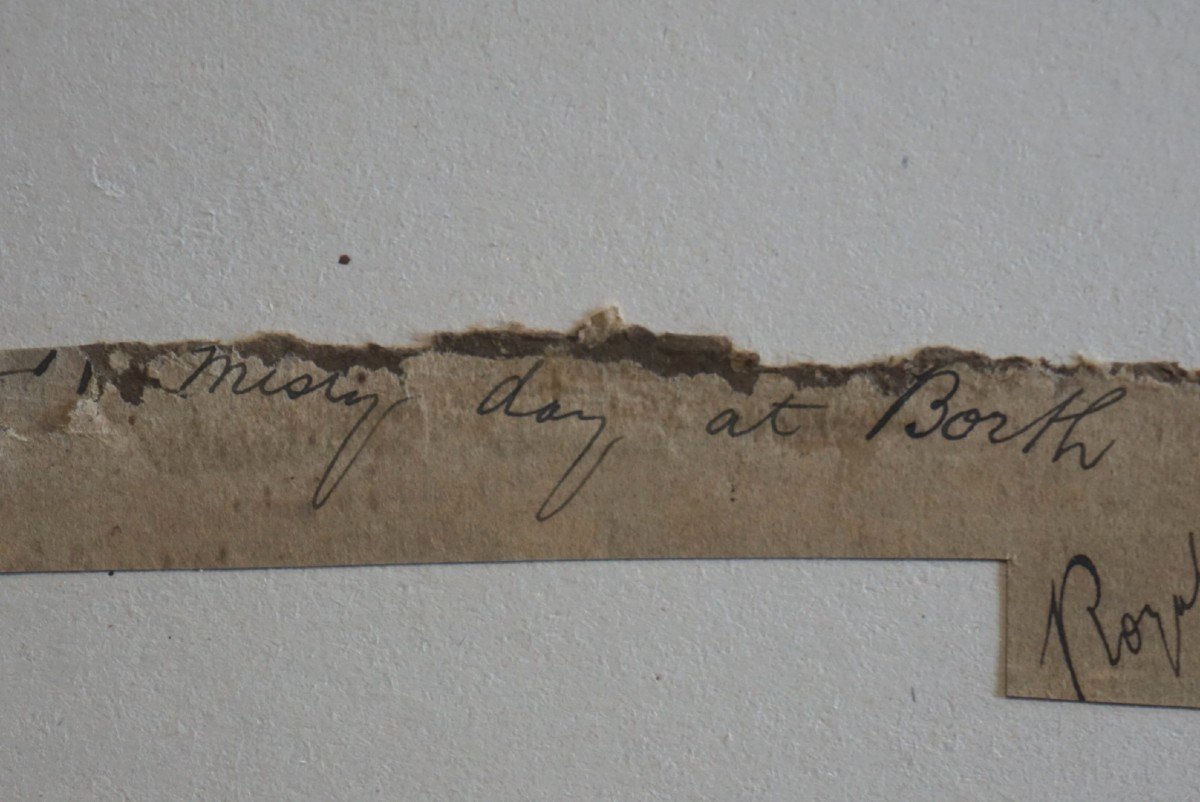 Misty day at Borth
Royal